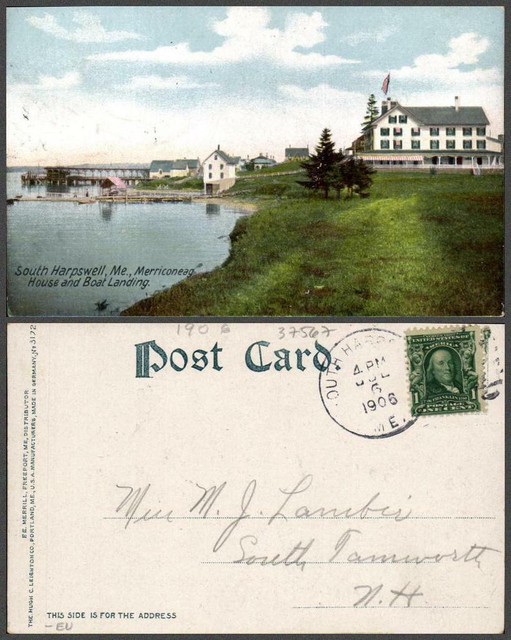 South Harpswell, Me., Merriconeag
House and Boat Landing.
1906 37567
Post Card.
SOUTH HARPS
4 PM
JUL
6
1906
ME.
UNITED STATES OF
AMERICA
FRANKLIN
1 POSTAGE 1
ONE CENT
M. J.
South Tamworth
N. H.
THIS SIDE IS FOR THE ADDRESS
- EU
THE HUGH C. LEIGHTON CO., PORTLAND, ME., U.S.A. MANUFACTURERS, MADE IN GERMANY, No 3172
F.E. MERRILL, FREEPORT, ME., DISTRIBUTOR